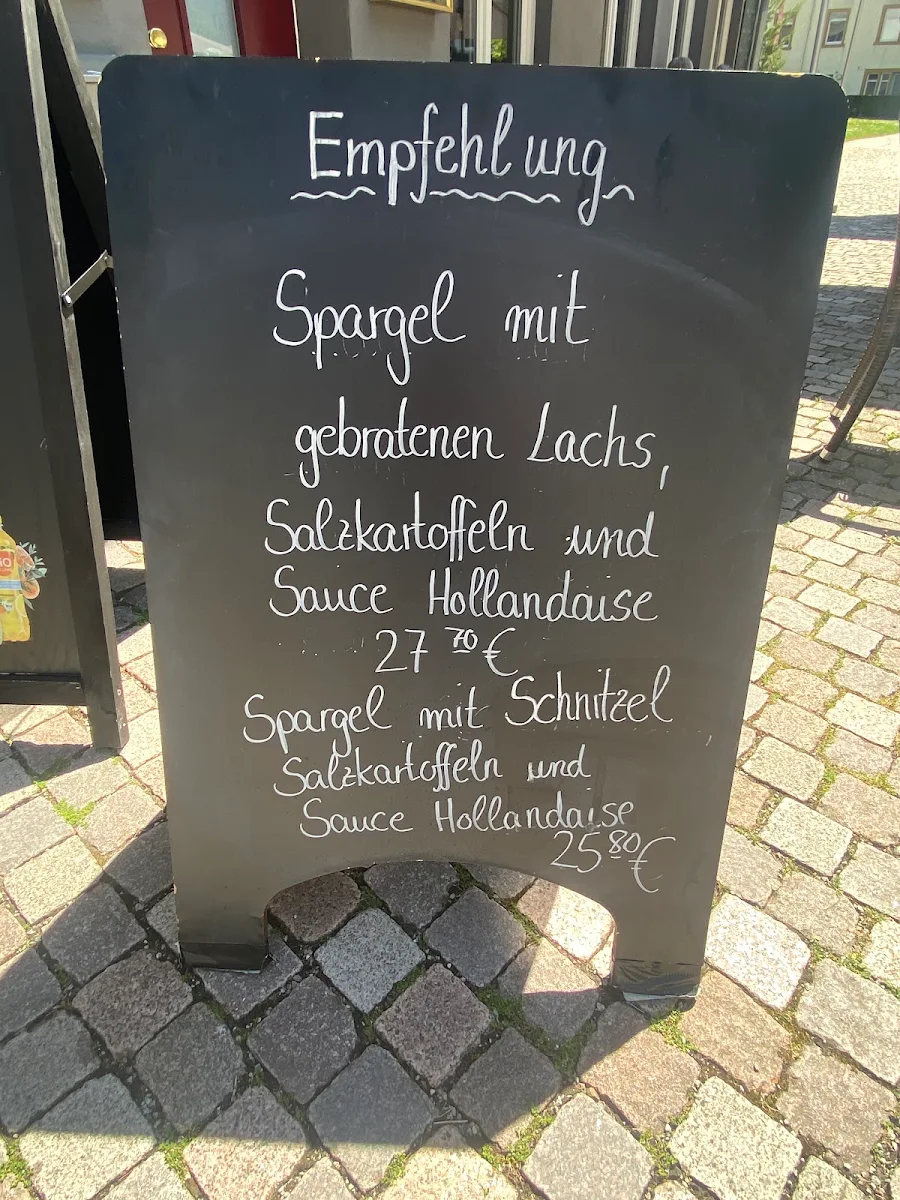 Empfehlung
Spargel mit
gebratenen Lachs,
Salzkartoffeln und
Sauce Hollandaise
27 70 €
Spargel mit Schnitzel
Salzkartoffeln und
Sauce Hollandaise
25 80 €